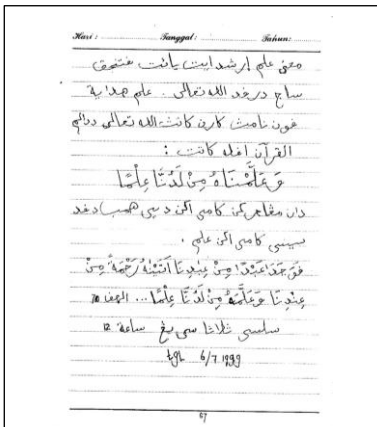 Hari : Tanggal : Tahun:
معنى علم إرشد ايت يائت
ساج در فد الله تعالى . علم هداية
فون نامث كارن كات الله تعالى ددالم
القرآن افله كات :
وَعَلَّمْنَاهُ مِنْ لَدُنَّا عِلْمًا
دان كامي اكن دسي همب درفد
سيسي كامي اكن علم .
عَبْدًا مِنْ عِبَدِنَا آتَيْنٰهُ رَحْمَةً مِنْ
عِنْدِنَا وَعَلَّمْهُ مِنْ لَدُنَّا عِلْمًا ... الكهف
سلسى ثلاثا ساعة ١٢
tgl 6/7 1999
67